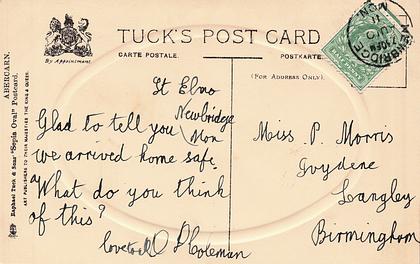 TUCK'S POST CARD
CARTE POSTALE.
POSTKARTE
(FOR ADDRESS ONLY).
By Appointment.
ABERCARN.
Raphael Tuck & Sons' "Sepia Oval" Postcard.
ART PUBLISHERS TO THEIR MAJESTIES THE KING & QUEEN.
NEWBRIDGE
MON.
St Elmo
Newbridge
Mon
Glad to tell you
we arrived home safe.
What do you think
of this?
Coleman
Miss P. Morris
Ivydene
Langley
Birmingham